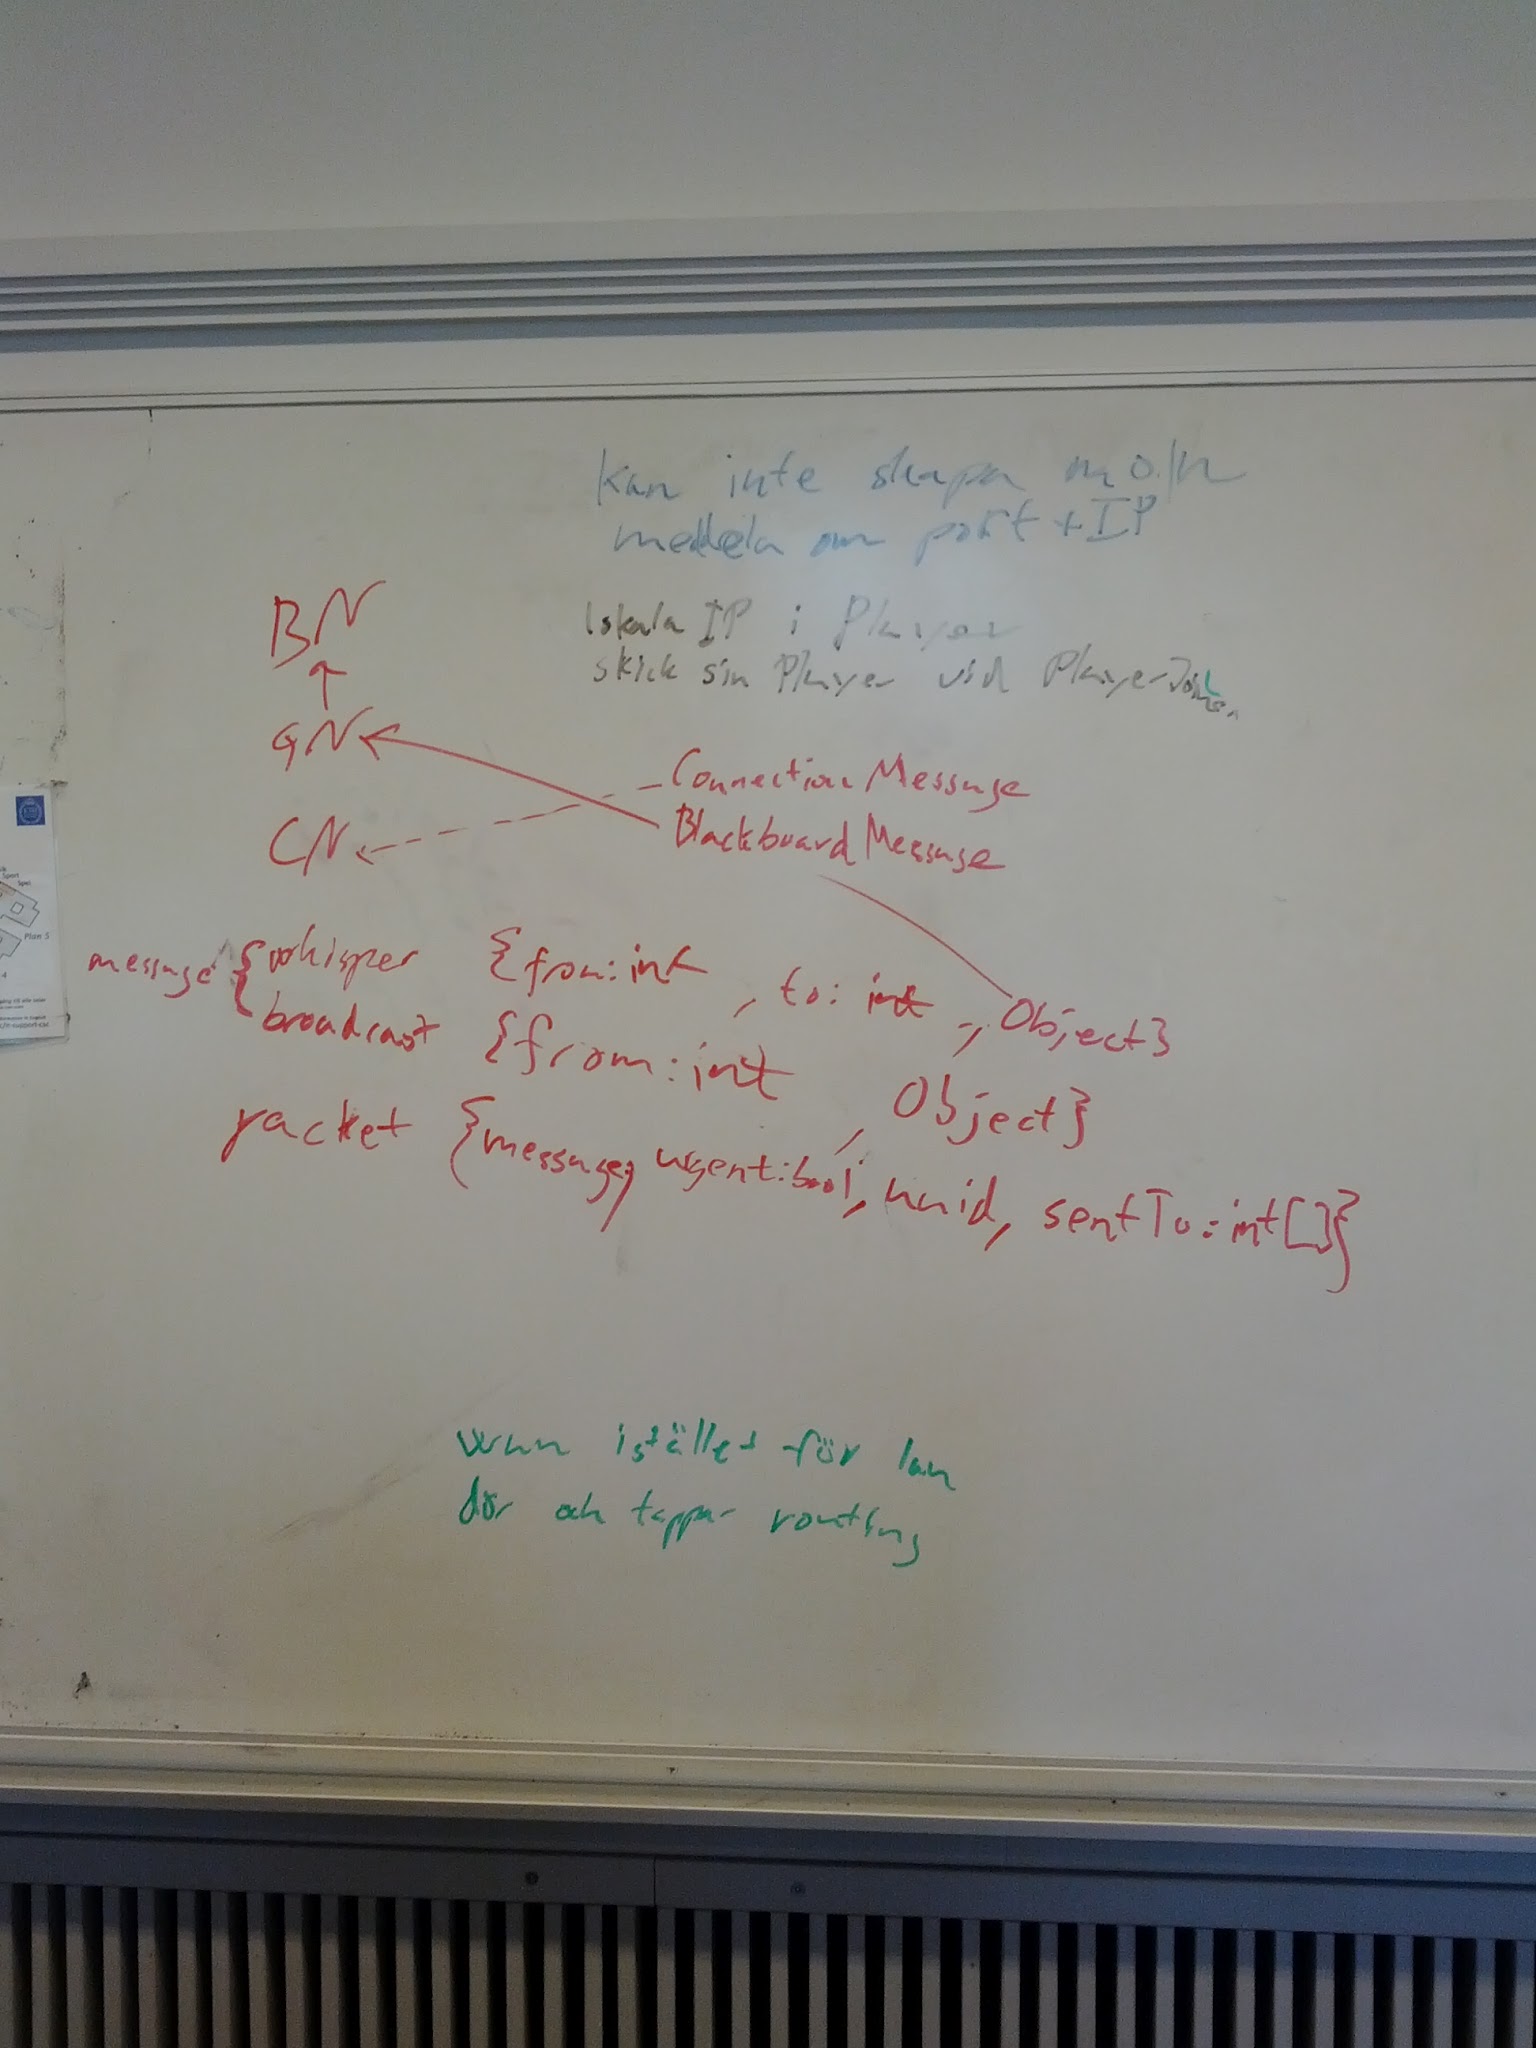 kan inte skapa
meddela om port + IP
lokala IP i Player
skick sin Player vid PlayerJoined
BN
GN
CN
Connection Message
Blackboard Message
message { whisper {from: int, to: int, Object}
broadcast {from: int, Object}
packet {message, urgent: bool, uuid, sentTo: int[]}
wan istället för lan
dör och tappar routing
Sport
Spel
Plan 5